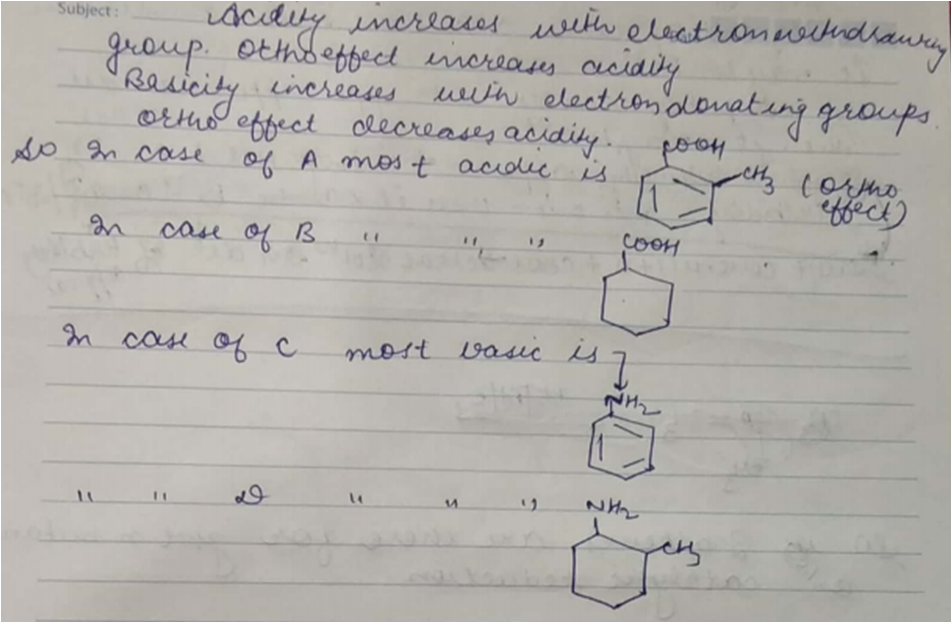 Subject:
Acidity increases with electron withdrawing
group. Ortho effect increases acidity
Basicity increases with electron donating groups.
ortho effect decreases acidity.
So In case of A most acidic is
COOH
CH3 (ortho
effect)
In case of B " " "
COOH
In case of C most basic is
NH2
" " D " " "
NH2
CH3